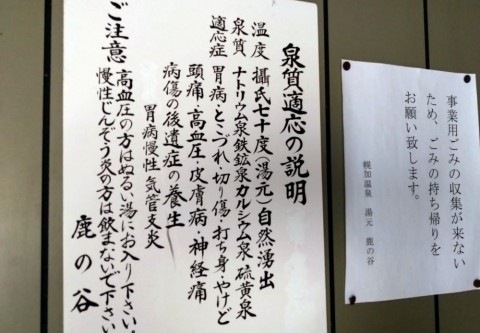 泉質適応の説明
温度 攝氏七十度(湯元)自然湧出
泉質 ナトリウム泉鉄鉱泉カルシウム泉硫黄泉
適応症 胃病・とづれ・切り傷・打ち身・やけど
頭痛・高血圧・皮膚病・神経痛
病傷の後遺症の養生
胃病慢性気管支炎
ご注意 高血圧の方はぬるい湯にお入り下さい。
慢性じんぞう炎の方は飲まないで下さい
鹿の谷
事業用ごみの収集が来ない
ため、ごみの持ち帰りを
お願い致します。
幌加温泉 湯元 鹿の谷